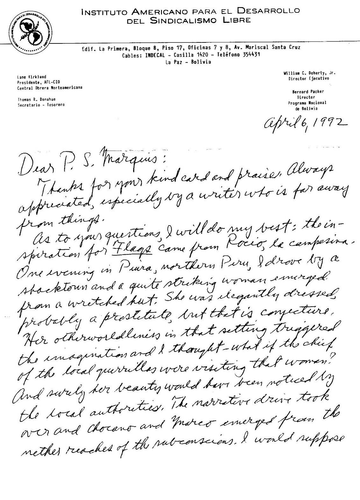 INSTITUTO AMERICANO PARA EL DESARROLLO
DEL SINDICALISMO LIBRE
Edif. La Primera, Bloque B, Piso 17, Oficinas 7 y 8, Av. Mariscal Santa Cruz
Cables: INDECAL - Casilla 1420 - Teléfono 354431
La Paz - Bolivia
Lane Kirkland
Presidente, AFL-CIO
Central Obrera Norteamericana
Truman R. Donahue
Secretario - Tesorero
William C. Doherty, Jr.
Director Ejecutivo
Bernard Packer
Director
Programa Nacional
de Bolivia
April 6, 1992
Dear P. S. Marquis:
Thanks for your kind card and praise. Always
appreciated, especially by a writer who is far away
from things.
As to your questions, I will do my best: the in-
spiration for Flags came from Rocio, la campesina.
One evening in Piura, northern Peru, I drove by a
shacktown and a quite striking woman emerged
from a wretched hut. She was elegantly dressed,
probably a prostitute, but that is conjecture.
Her otherworldliness in that setting triggered
the imagination and I thought - what if the chief
of the local guerrillas were visiting that woman?
And surely her beauty would have been noticed by
the local authorities. The narrative drive took
over and Chocano and Marco emerged from the
nether reaches of the subconscious. I would suppose